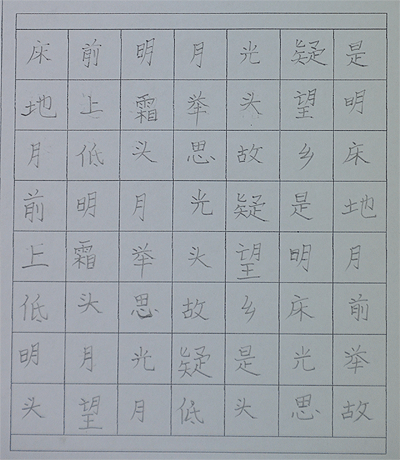 床前明月光疑是
地上霜举头望明
月低头思故乡床
前明月光疑是地
上霜举头望明月
低头思故乡床前
明月光疑是光举
头望月低头思故